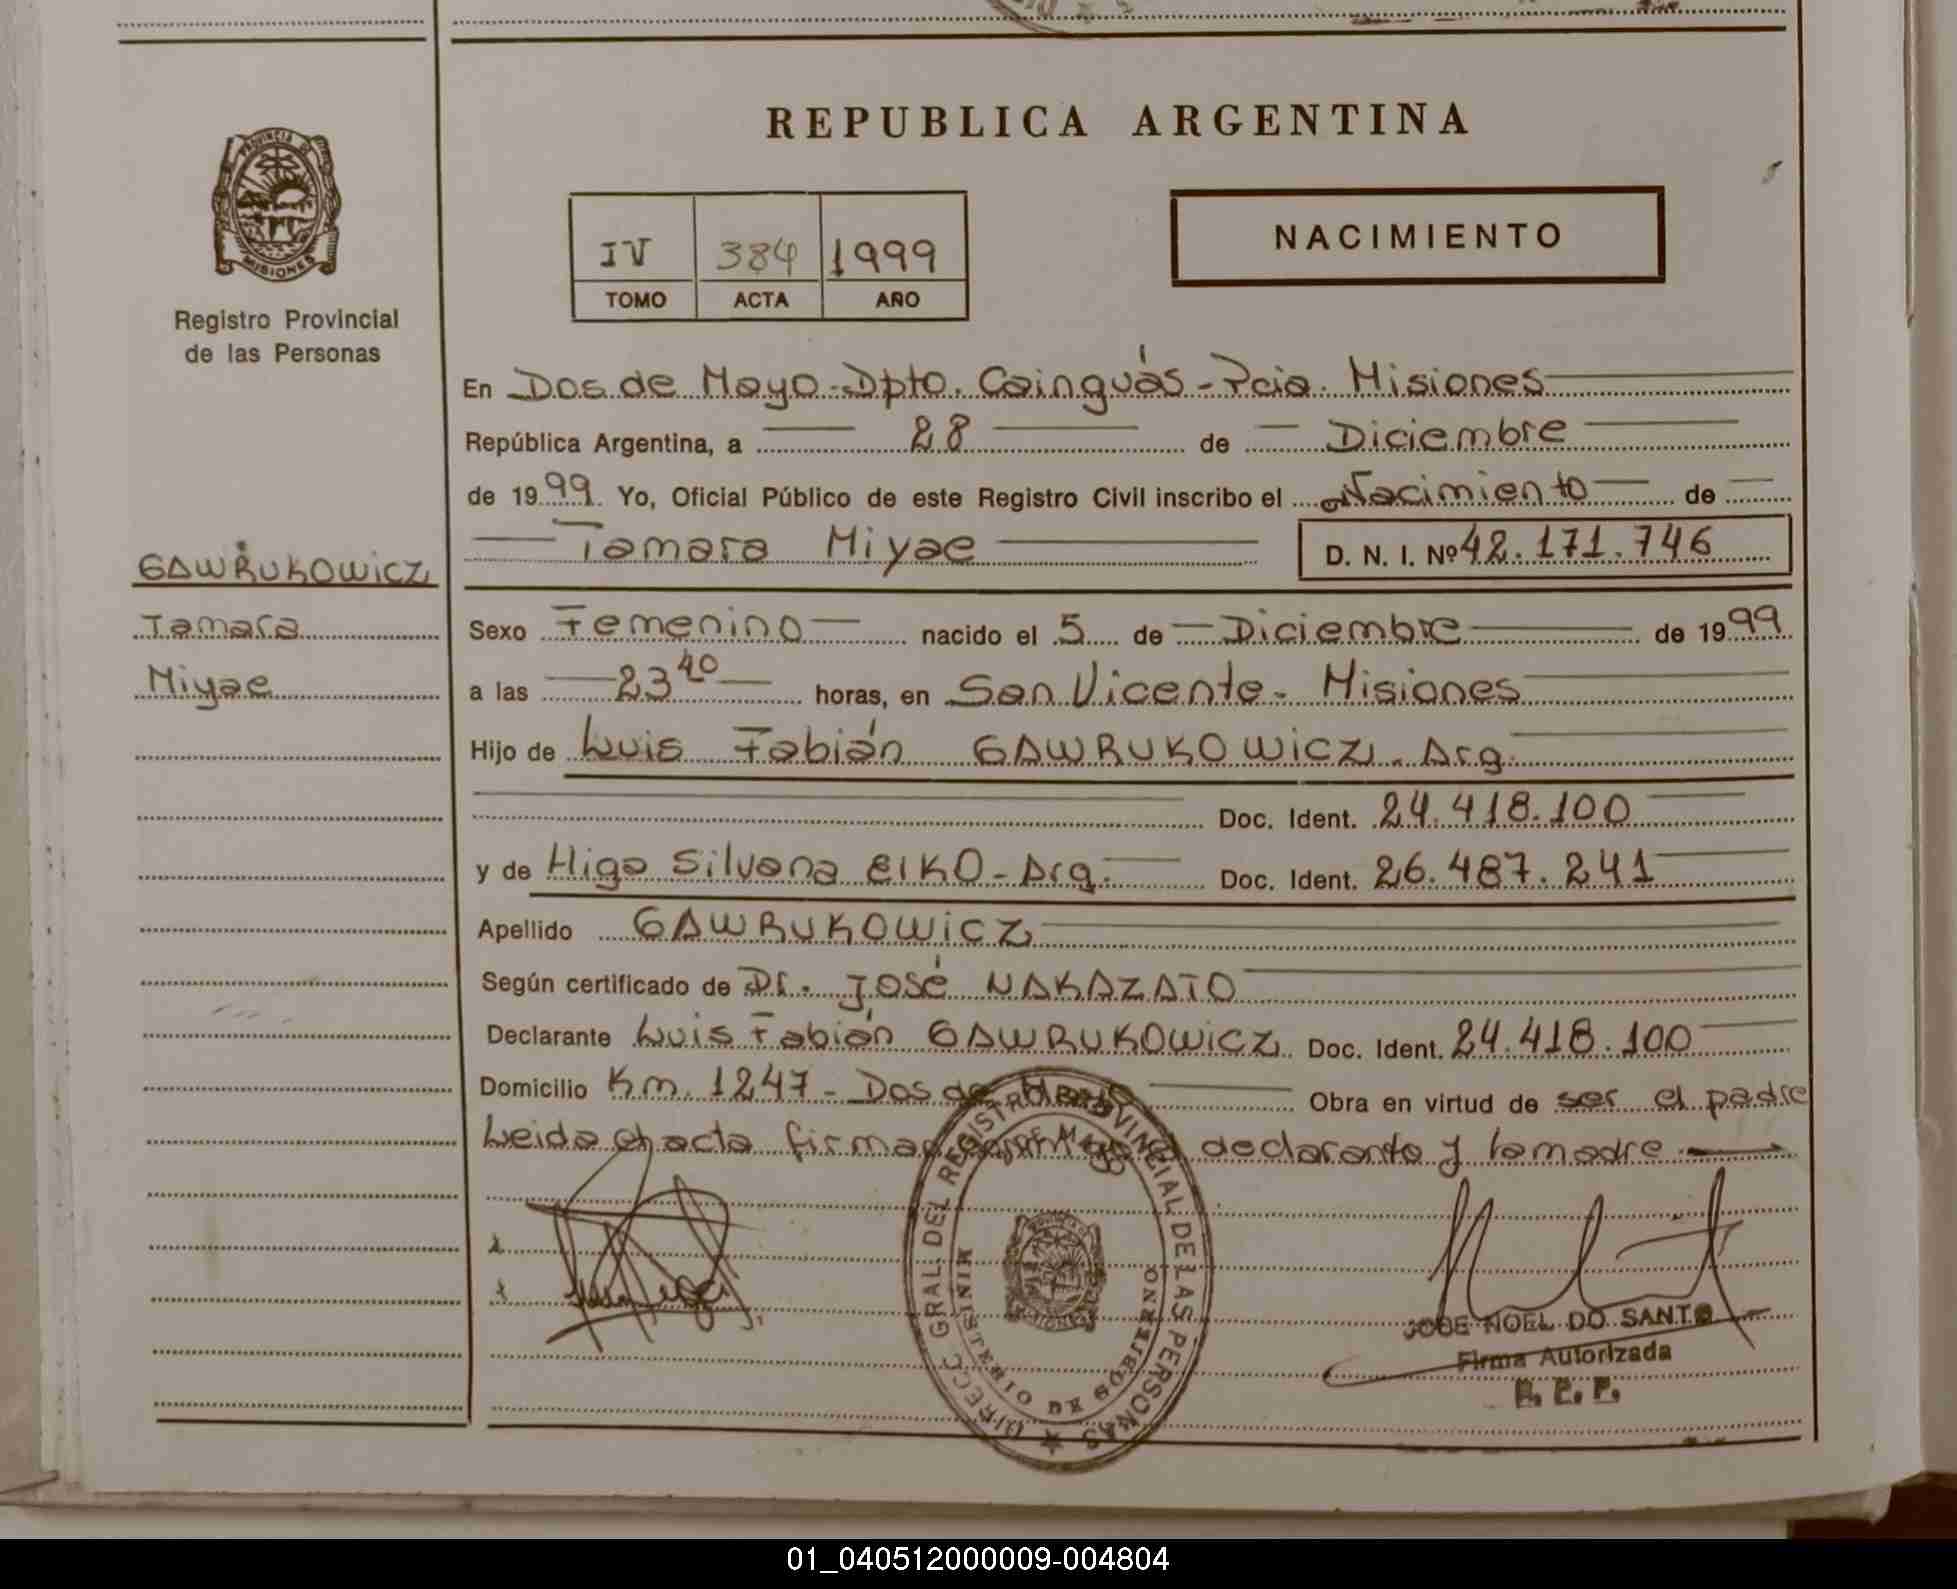 REPUBLICA ARGENTINA
PROVINCIA DE
MISIONES
Registro Provincial
de las Personas
IV 384 1999
TOMO ACTA AÑO
NACIMIENTO
En Dos de Mayo - Dpto. Cainguás - Pcia. Misiones
República Argentina, a 28 de Diciembre
de 1999. Yo, Oficial Público de este Registro Civil inscribo el Nacimiento de
Tamara Miyae D. N. I. Nº 42.171.746
GAWRUKOWICZ
Tamara
Miyae
Sexo Femenino nacido el 5 de Diciembre de 1999
a las 23 40 horas, en San Vicente - Misiones
Hijo de Luis Fabián GAWRUKOWICZ - Arg.
Doc. Ident. 24.418.100
y de Higa Silvana EIKO - Arg. Doc. Ident. 26.487.241
Apellido GAWRUKOWICZ
Según certificado de Dr. José NAKAZATO
Declarante Luis Fabián GAWRUKOWICZ Doc. Ident. 24.418.100
Domicilio Km. 1247 - Dos de Mayo Obra en virtud de ser el padre
Leida el acta firman declarante y la madre
DIRECC. GRAL. DEL REGISTRO PROVINCIAL DE LAS PERSONAS
MINISTERIO DE GOBIERNO
JOSE NOEL DO SANTO
Firma Autorizada
R. P. P.
01_040512000009-004804